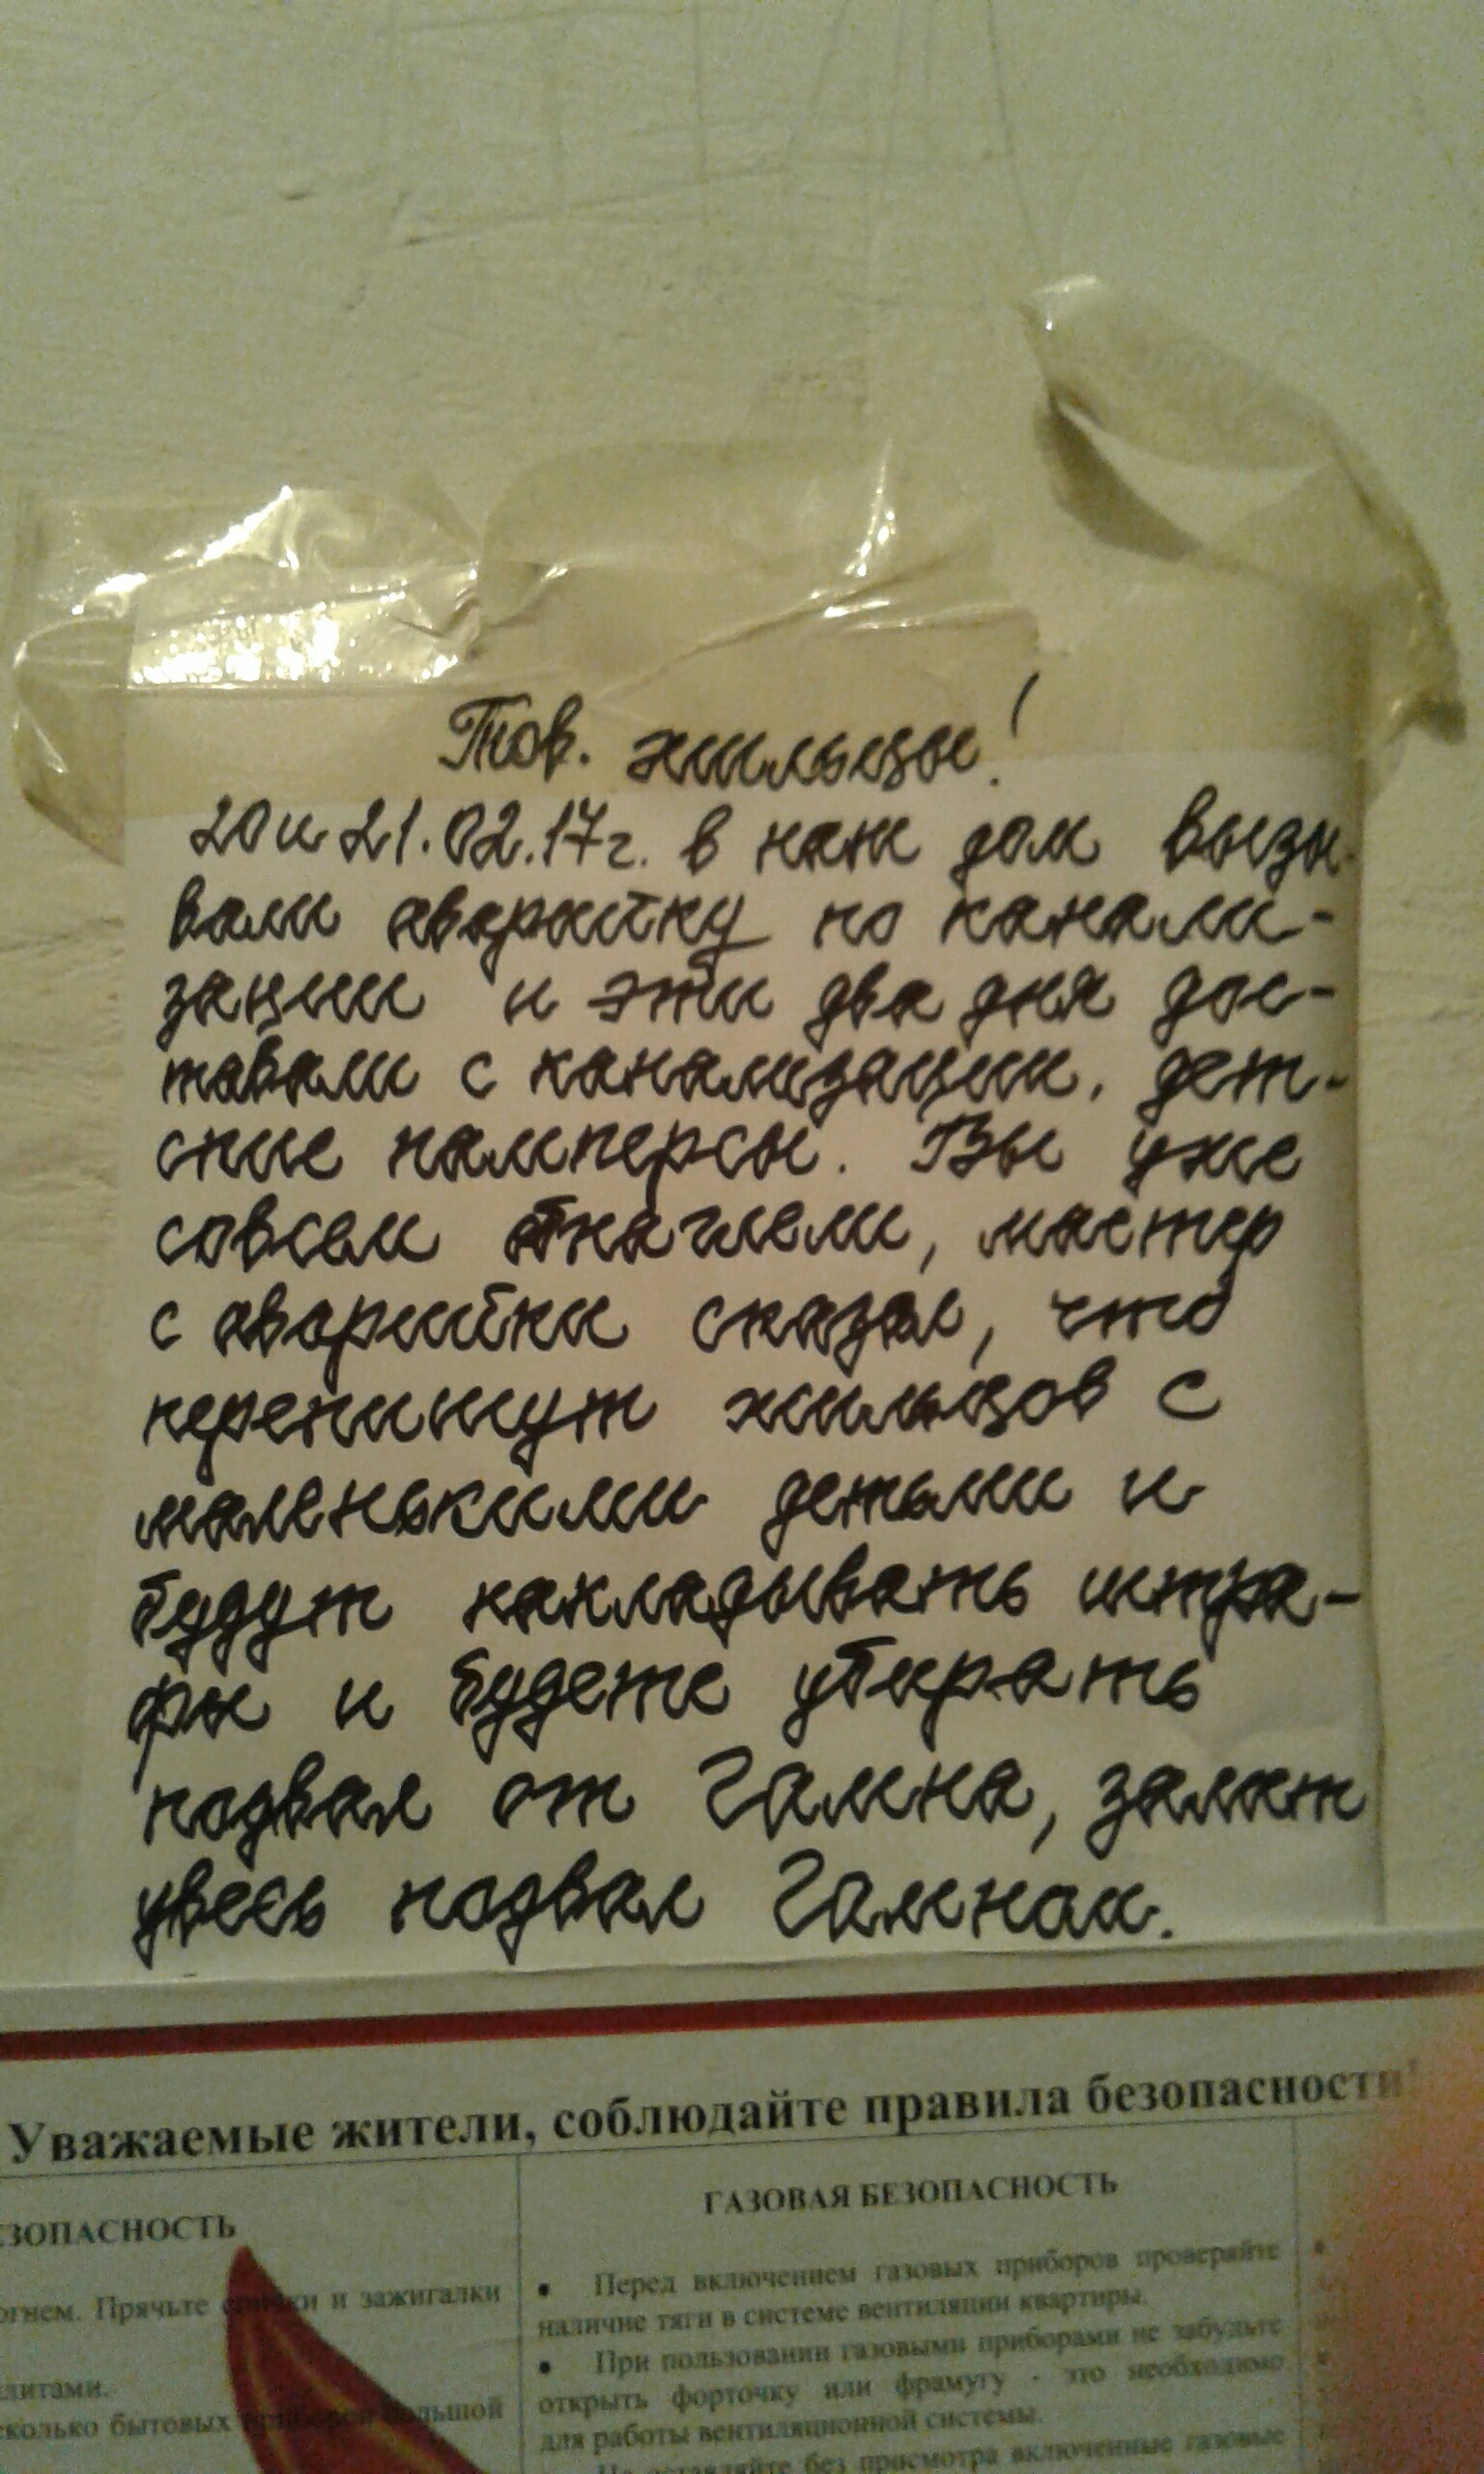 Тов. жильцы!
20 и 21.02.17г. в наш дом вызы-
вали аварийку по канали-
зации и эти два дня дос-
тавали с канализации, дет-
ские памперсы. Вы уже
совсем обнаглели, мастер
с аварийки сказал, что
перепишут жильцов с
маленькими детьми и
будут накладывать штра-
фы и будете убирать
подвал от Гамна, залит
увесь подвал Гамном.
Уважаемые жители, соблюдайте правила безопасности!
ГАЗОВАЯ БЕЗОПАСНОСТЬ
ЗОПАСНОСТЬ
• Перед включением газовых приборов проверяйте
огнем. Прячьте спички и зажигалки
наличие тяги в системе вентиляции квартиры.
• При пользовании газовыми приборами не забудьте
литами.
открыть форточку или фрамугу - это необходимо
сколько бытовых приборов большой
для работы вентиляционной системы.
оставляйте без присмотра включенные газовые